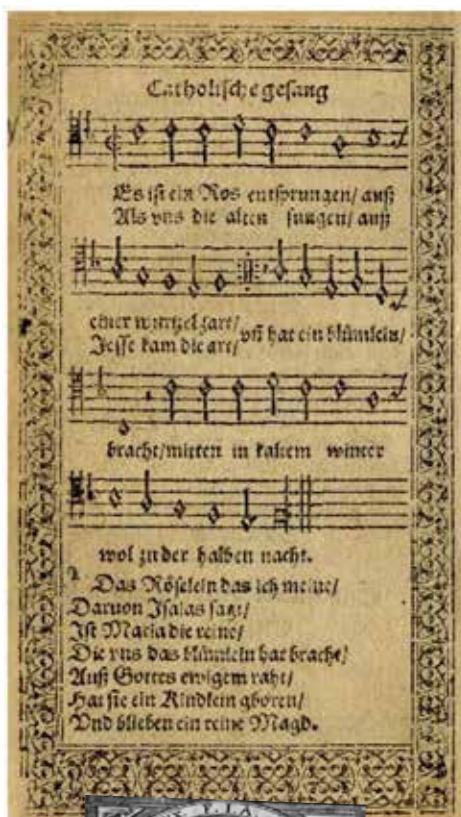 Catholische gesang
Es ist ein Ros entsprungen/ auß
Als vns die alten sungen/ auß
einer wurtzel zart/
Jesse kam die art/
vñ hat ein blümlein/
bracht/mitten in kaltem winter
wol zu der halben nacht.
2 Das Röselein das ich meine/
Daruon Isaias sagt/
Ist Maria die reine/
Die vns das blümlein hat bracht/
Auß Gottes ewigem raht/
Hat sie ein Kindlein gboren/
Vnd blieben ein reine Magd.